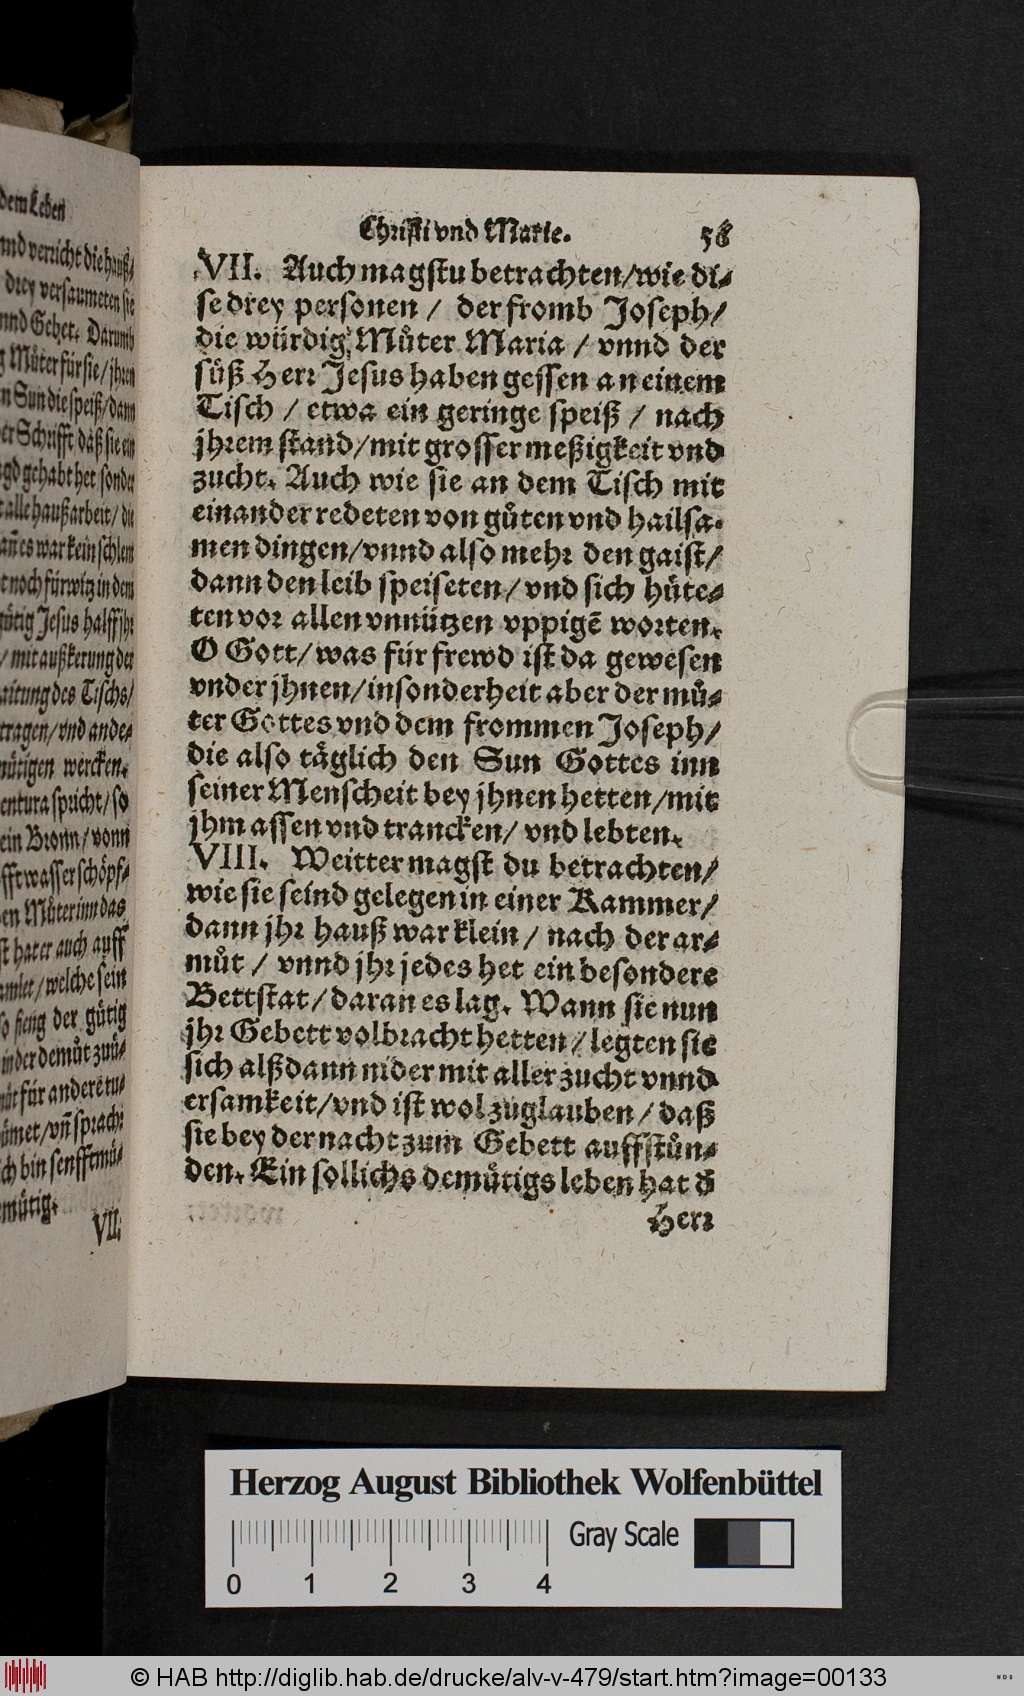 dem Leben
vnd verricht die hauß⸗
drey versaumeten sie
vnnd Gebet. Darumb
Můter für sie / jhren
Sun die speiß / dann
Schrifft daß sie ein
gehabt het sonder
alle hauß arbeit / die
es war kein schlem
noch fürwitz in dem
gütig Jesus halff jhr
/ mit außkerung der
des Tischs /
tragen / vnd ande⸗
wercken.
spricht / so
ein Bronn / vonn
wasser schöpf⸗
Můter inn das
hat er auch auff
/ welche sein
so fieng der gütig
in der demůt zuů⸗
für andere tu⸗
/ vñ sprach:
ich bin senfftmü⸗
VII.
Christi vnd Marie. 58
VII. Auch magstu betrachten / wie di⸗
se drey personen / der fromb Joseph /
die würdig Můter Maria / vnnd der
süß Herr Jesus haben gessen an einem
Tisch / etwa ein geringe speiß / nach
jhrem stand / mit grosser meßigkeit vnd
zucht. Auch wie sie an dem Tisch mit
einander redeten von gůten vnd hailsa⸗
men dingen / vnnd also mehr den gaist /
dann den leib speiseten / vnd sich hüte⸗
ten vor allen vnnützen vppigē worten.
O Gott / was für frewd ist da gewesen
vnder jhnen / insonderheit aber der mů⸗
ter Gottes vnd dem frommen Joseph /
die also täglich den Sun Gottes inn
seiner Menscheit bey jhnen hetten / mit
jhm assen vnd trancken / vnd lebten.
VIII. Weitter magst du betrachten /
wie sie seind gelegen in einer Kammer /
dann jhr hauß war klein / nach der ar⸗
můt / vnnd jhr jedes het ein besondere
Bettstat / daran es lag. Wann sie nun
jhr Gebett volbracht hetten / legten sie
sich alßdann nider mit aller zucht vnnd
ersamkeit / vnd ist wol zůglauben / daß
sie bey der nacht zum Gebett auffstůn⸗
den. Ein sollichs demütigs leben hat d̄
Herr
Herzog August Bibliothek Wolfenbüttel
Gray Scale
0 1 2 3 4
© HAB http://diglib.hab.de/drucke/alv-v-479/start.htm?image=00133